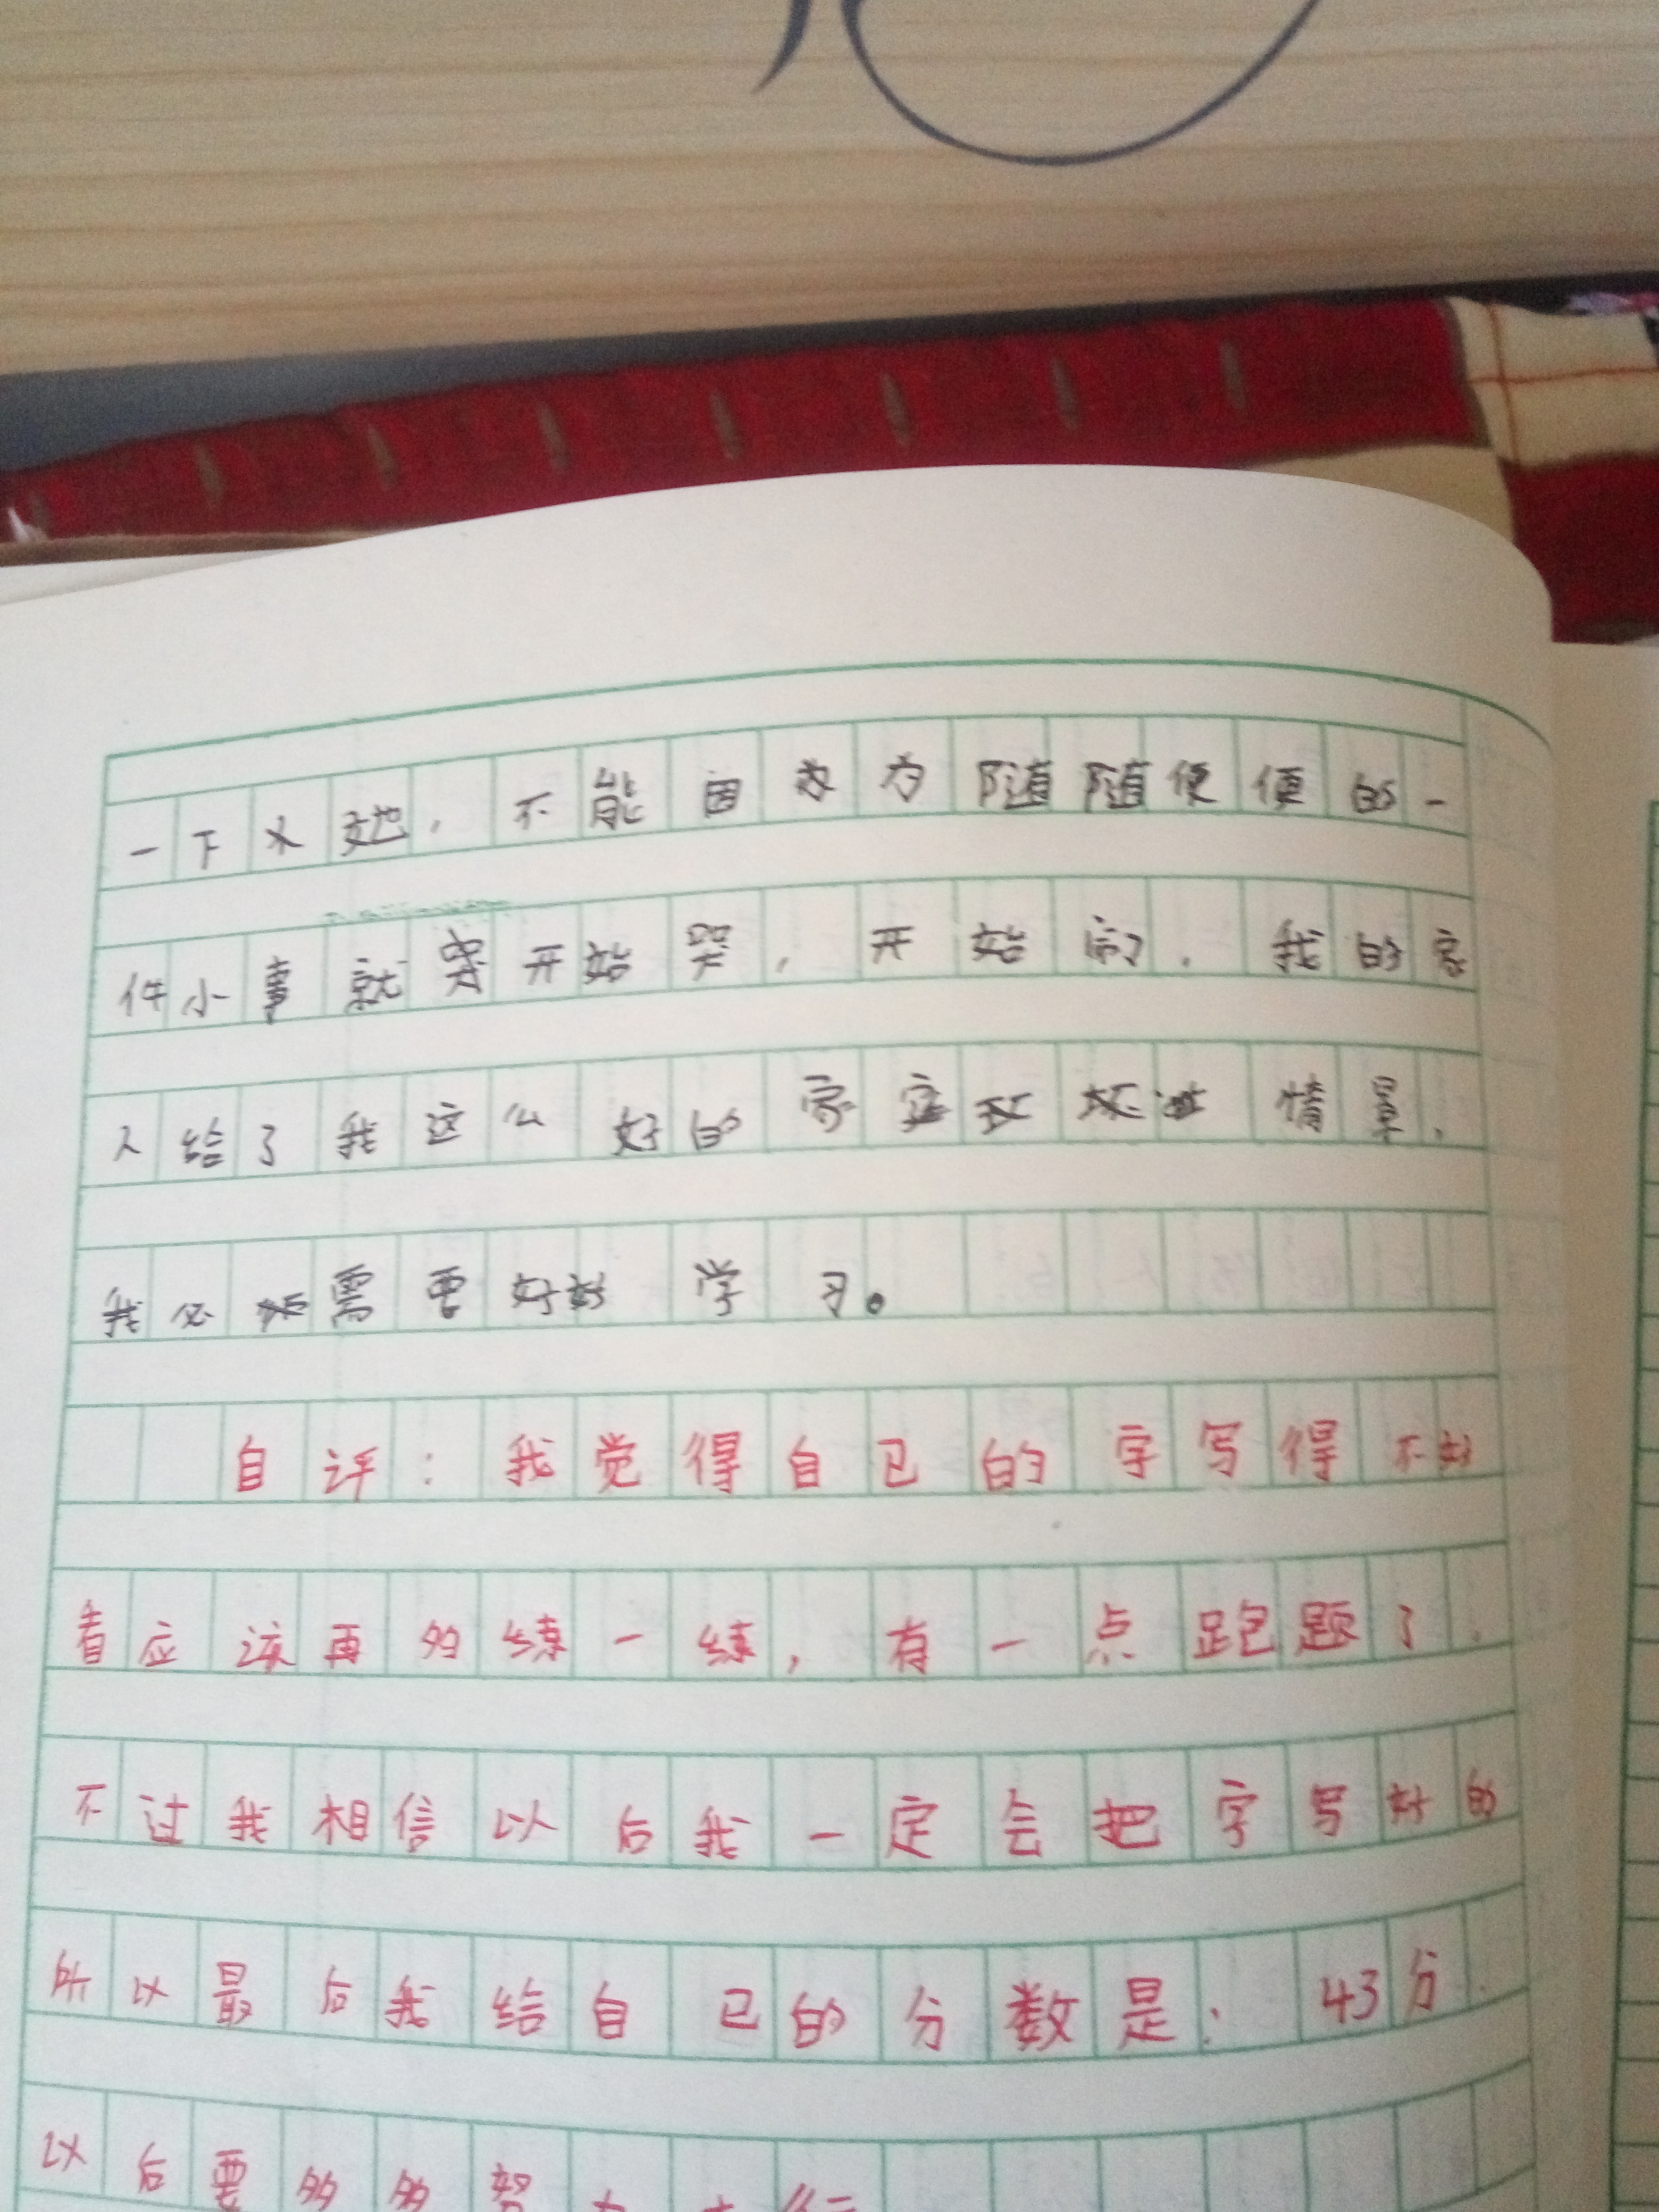 一下义她，不能因为为随随便便的一
件小事就哭开始哭，开始闹，我的家
人给了我这么好的家庭 情景，
我必须需要好好学习。
自评：我觉得自己的字写得不好
看应该再多练一练，有一点跑题了，
不过我相信以后我一定会把字写好的
所以最后我给自己的分数是：43分．
以后要多多努力才行